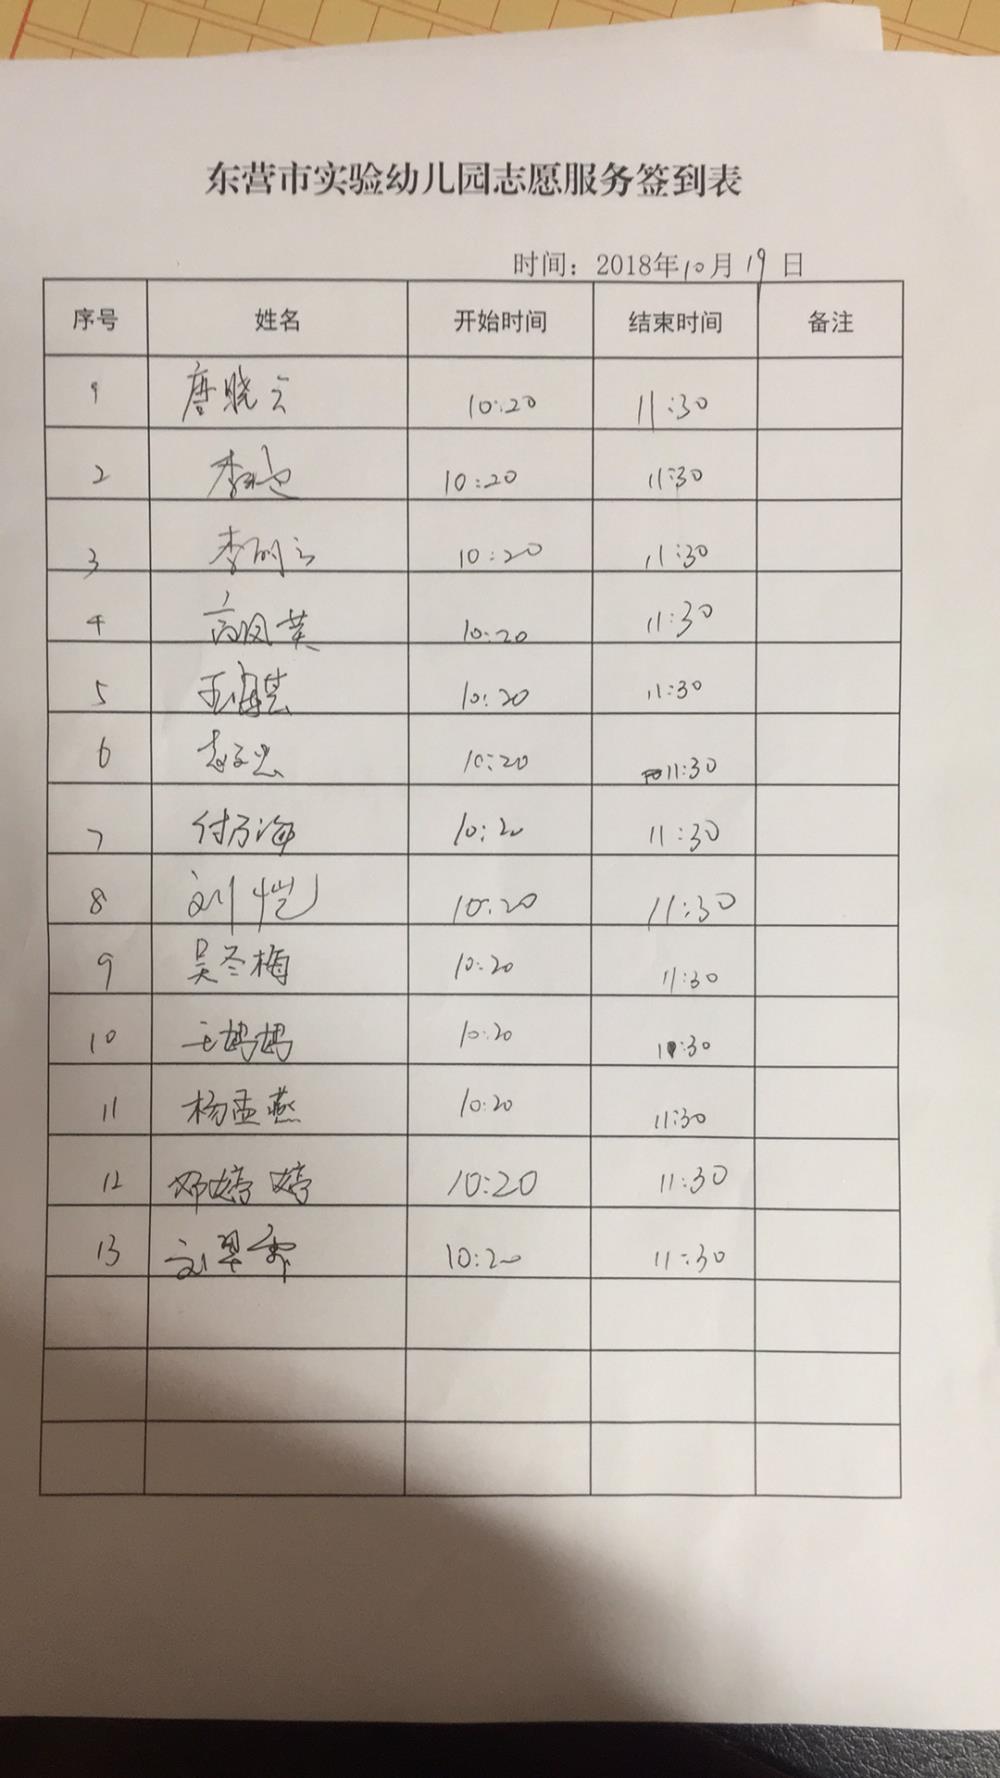 东营市实验幼儿园志愿服务签到表
时间：2018年10月19日
序号 姓名 开始时间 结束时间 备注
1 唐晓云 10:20 11:30
2 李 10:20 11:30
3 李 10:20 11:30
4 高凤英 10:20 11:30
5 王海 10:20 11:30
6 10:20 11:30
7 付万海 10:20 11:30
8 刘恺 10:20 11:30
9 吴冬梅 10:20 11:30
10 王鸽鸽 10:20 11:30
11 杨孟燕 10:20 11:30
12 邓婷婷 10:20 11:30
13 刘翠 10:20 11:30